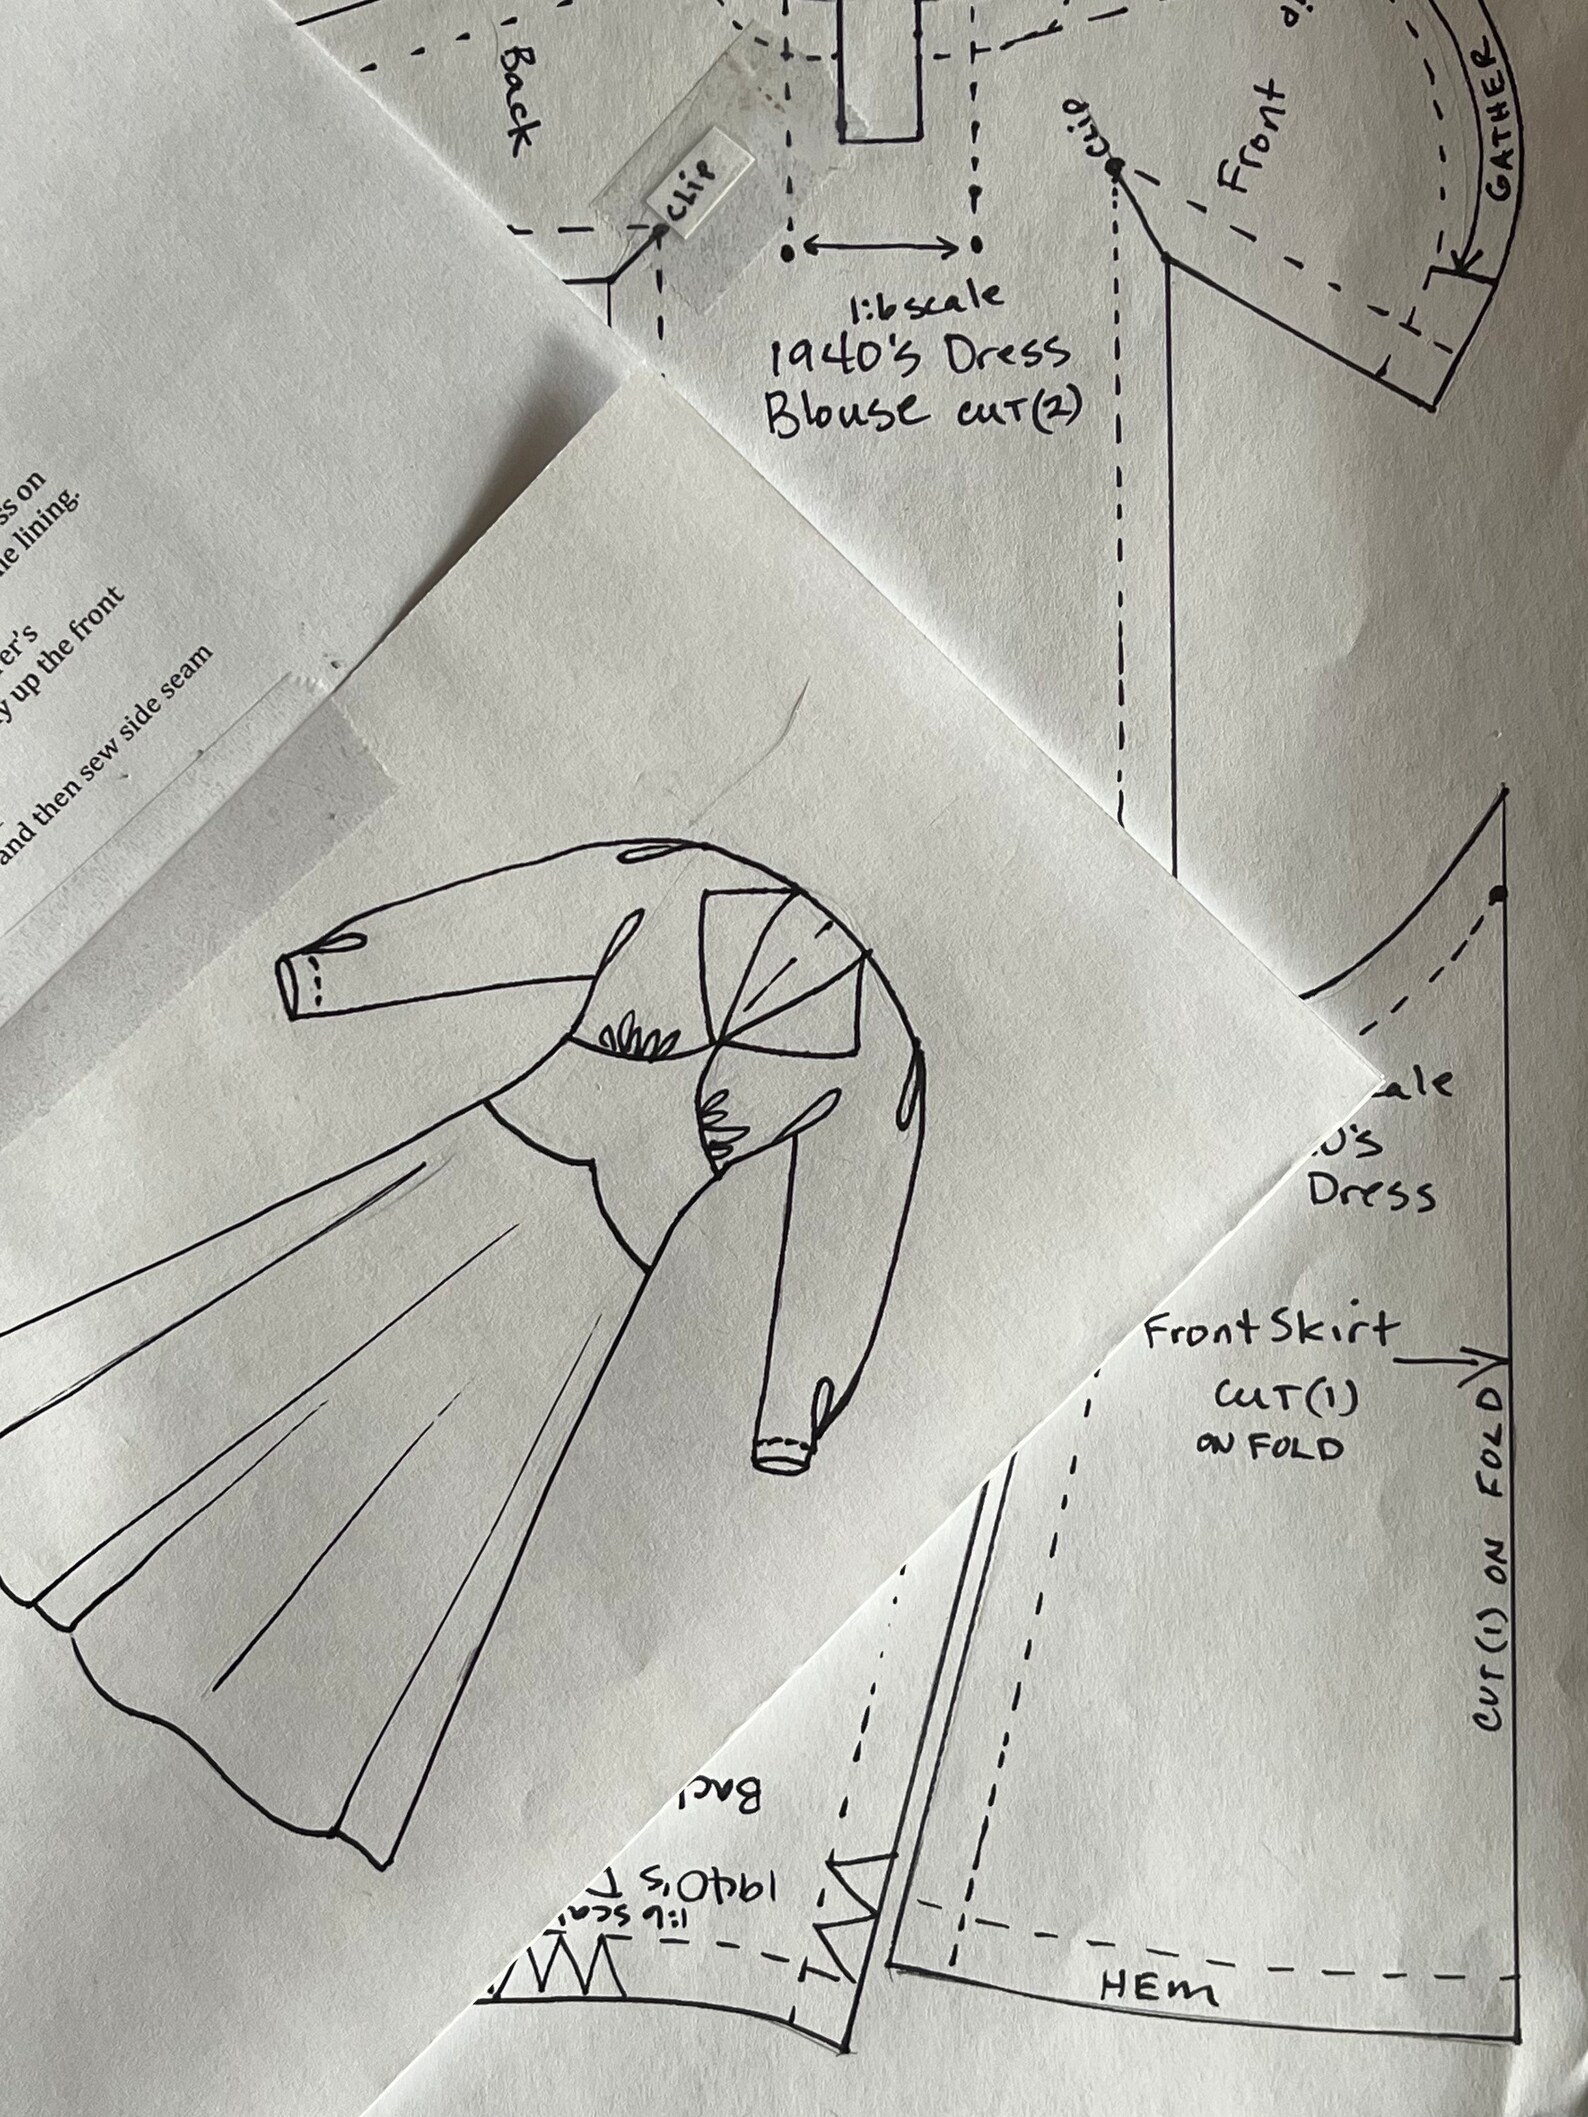 Back
CLIP
CLIP
Front
GATHER
1:6 scale
1940's Dress
Blouse CUT(2)
ss on
lining.
er's
up the front
and then sew side seam
ale
0's
Dress
Front Skirt
CUT(1)
ON FOLD
CUT(1) ON FOLD
HEM
Bac
1940's
1:6 scal